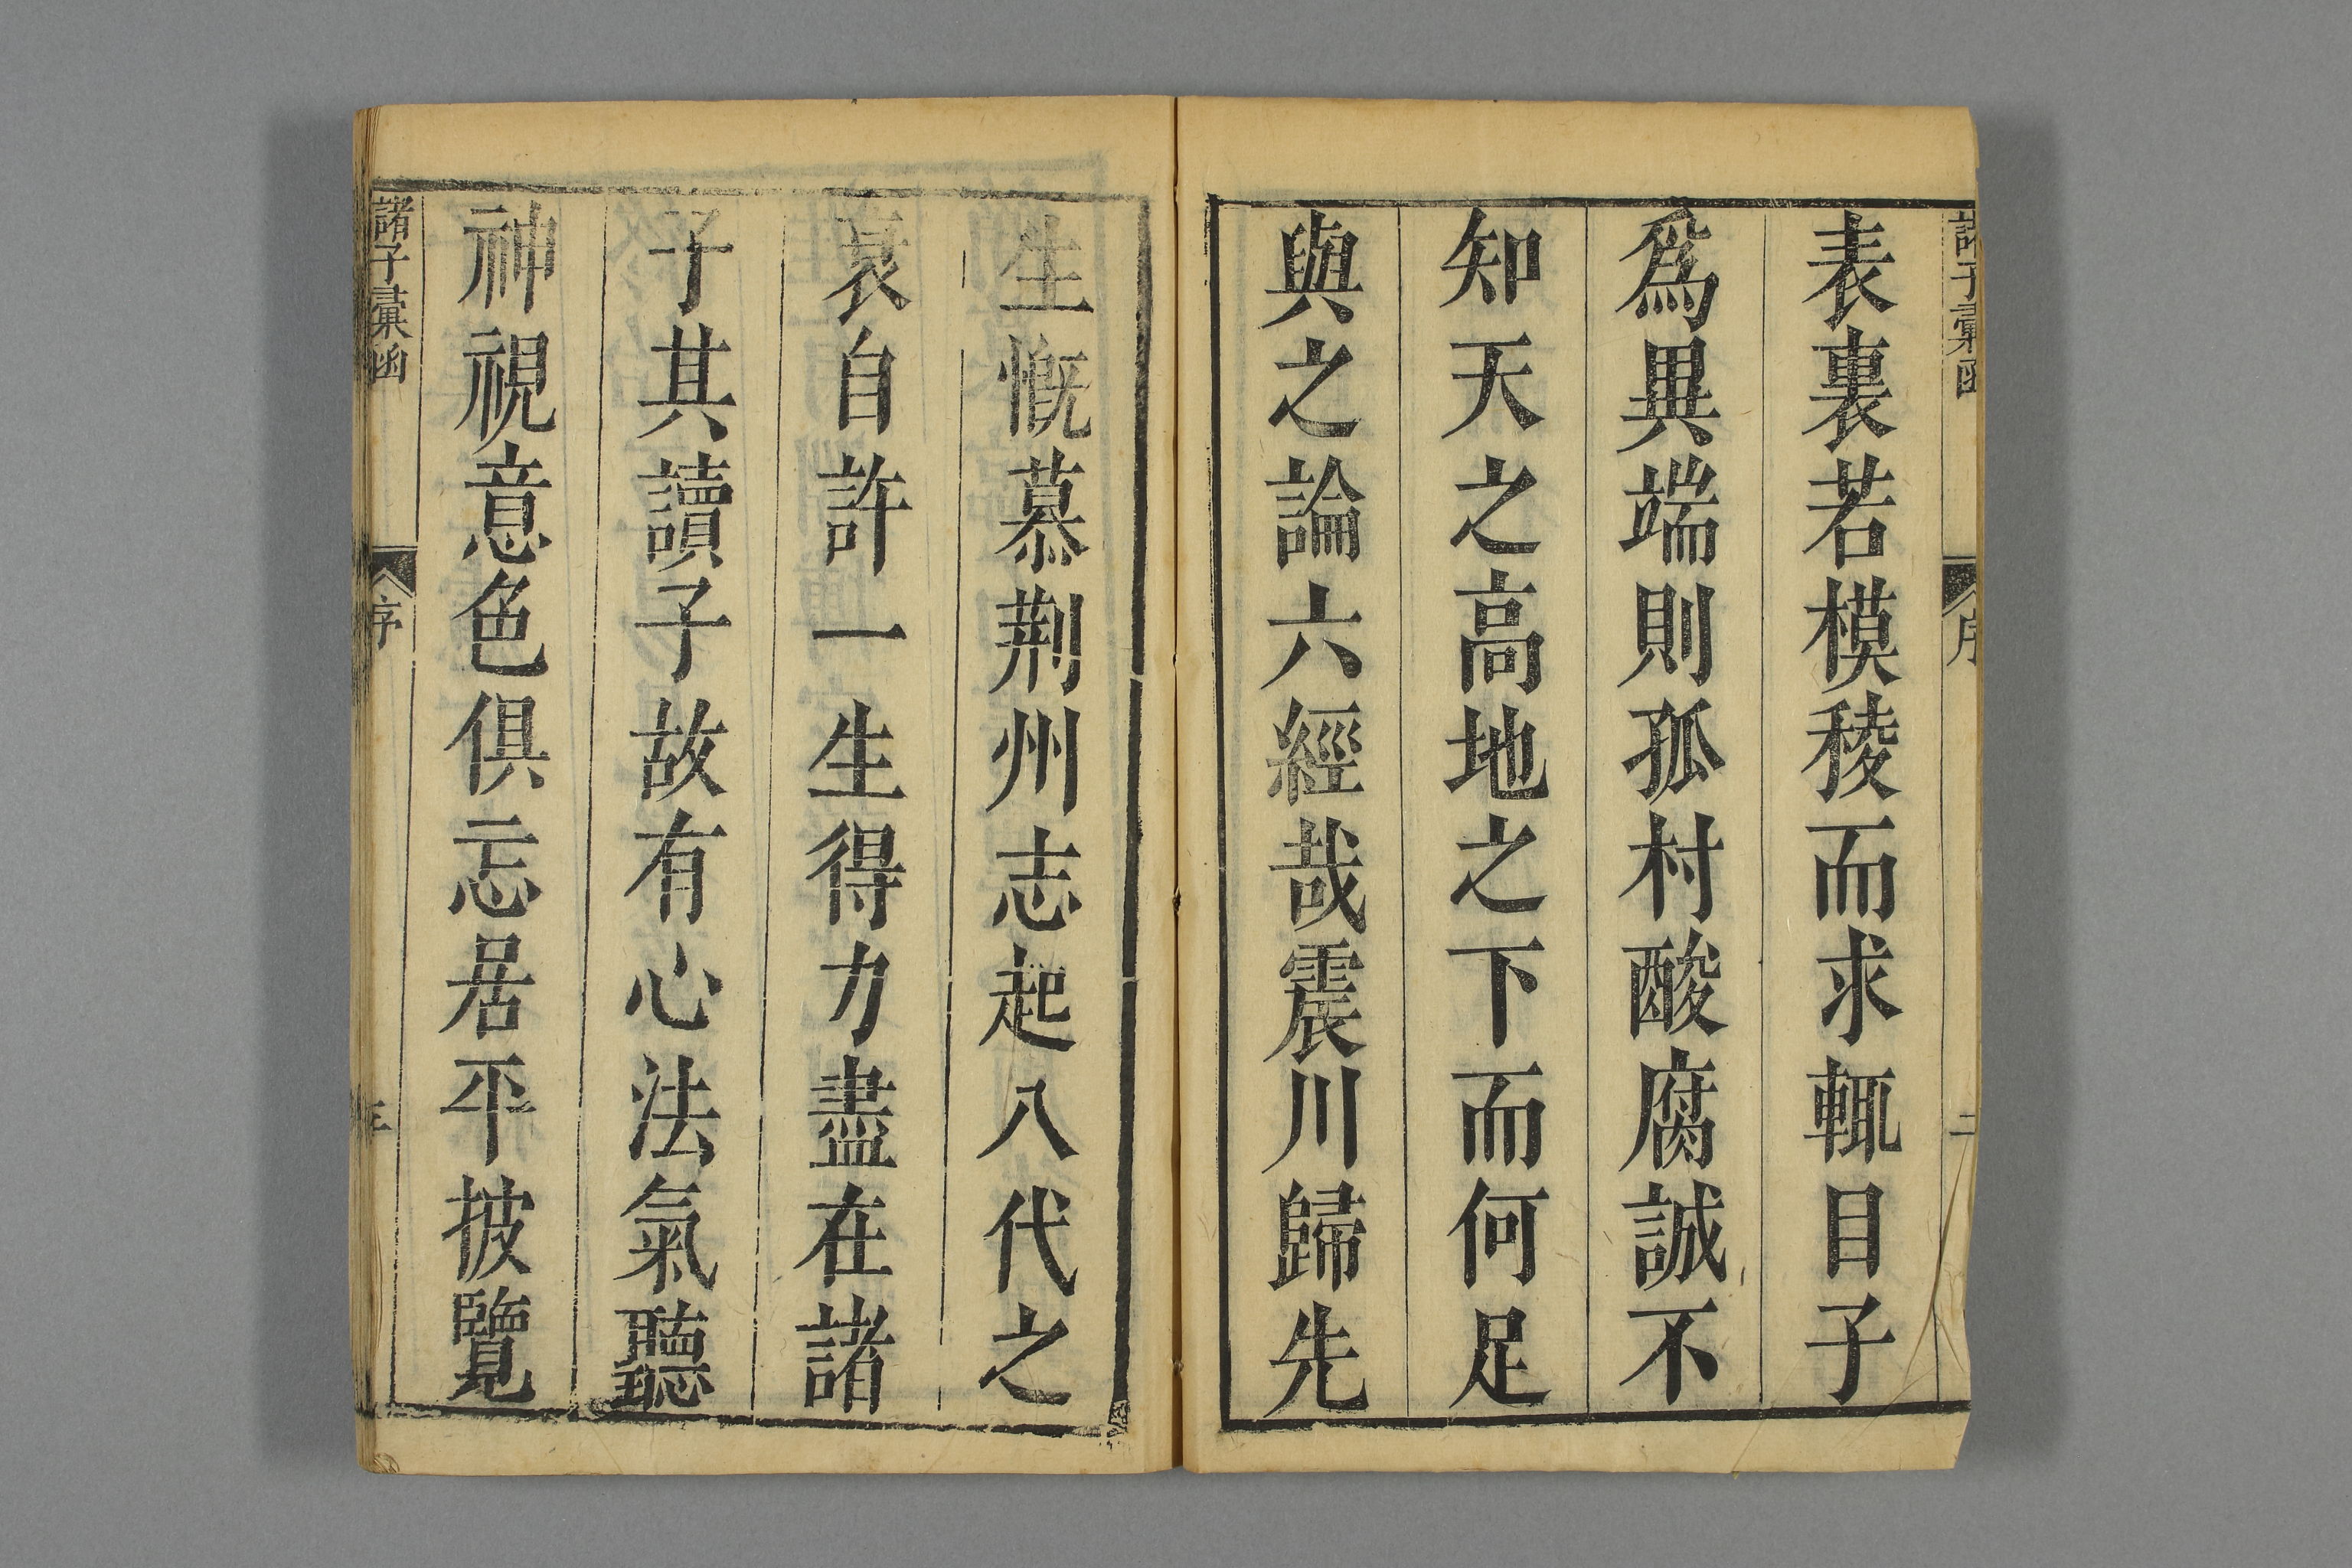 諸子彙函
序
二
表裏若模稜而求輒目子
爲異端則孤村酸腐誠不
知天之高地之下而何足
與之論六經哉震川歸先
生慨慕荆州志起八代之
衰自許一生得力盡在諸
子其讀子故有心法氣聽
神視意色俱忘居平披覽
諸子彙函
序
三